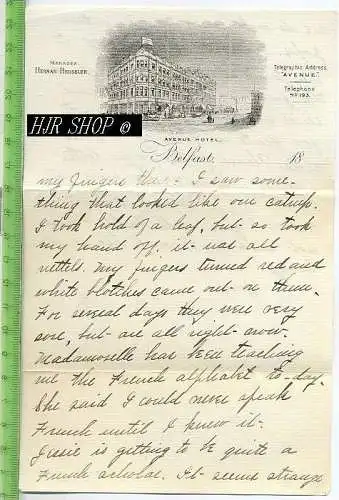 MANAGER
HERMAN HEUSELER.
Telegraphic Address.
"AVENUE."
Telephone
No 193.
HJR SHOP ©
AVENUE HOTEL.
Belfast, 18
my fingers that. I saw some-
thing that looked like our catnip.
I took hold of a leaf, but so took
my hand off, it was all
nettels. My fingers turned red and
white blotches came out on them.
For several days they were very
sore, but are all right now.
Madamoselle has been teaching
me the French alphabet to-day.
She said I could never speak
French until I knew it.
Jessie is getting to be quite a
French scholar. It seems strange